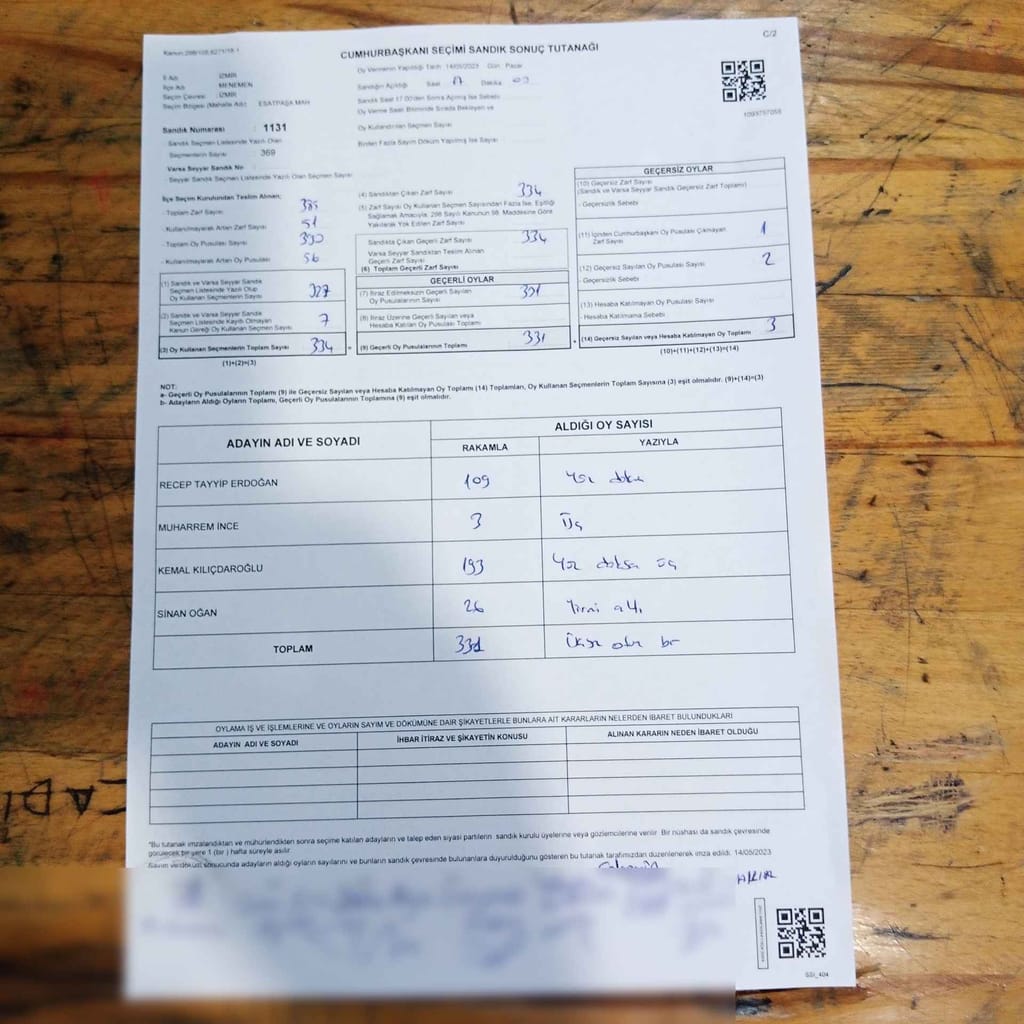 C/2
Kanun:298/108,6271/18.1
CUMHURBAŞKANI SEÇİMİ SANDIK SONUÇ TUTANAĞI
İl Adı : İZMİR
İlçe Adı : MENEMEN
Seçim Çevresi : İZMİR
Seçim Bölgesi (Mahalle Adı) : ESATPAŞA MAH
Oy Vermenin Yapıldığı Tarih : 14/05/2023 Gün : Pazar
Sandığın Açıldığı Saat 17 Dakika
Sandık Saat 17.00'den Sonra Açılmış İse Sebebi
Oy Verme Saati Bitiminde Sırada Bekleyen ve
Oy Kullandırılan Seçmen Sayısı
Birden Fazla Sayım Döküm Yapılmış İse Sayısı
Sandık Numarası : 1131
Sandık Seçmen Listesinde Yazılı Olan
Seçmenlerin Sayısı : 369
Varsa Seyyar Sandık No
Seyyar Sandık Seçmen Listesinde Yazılı Olan Seçmen Sayısı
İlçe Seçim Kurulundan Teslim Alınan;
- Toplam Zarf Sayısı 385
- Kullanılmayarak Artan Zarf Sayısı 51
- Toplam Oy Pusulası Sayısı 390
- Kullanılmayarak Artan Oy Pusulası 56
(1) Sandık ve Varsa Seyyar Sandık
Seçmen Listesinde Yazılı Olup
Oy Kullanan Seçmenlerin Sayısı 327
(2) Sandık ve Varsa Seyyar Sandık
Seçmen Listesinde Kayıtlı Olmayan
Kanun Gereği Oy Kullanan Seçmen Sayısı 7
(3) Oy Kullanan Seçmenlerin Toplam Sayısı 334 =
(1)+(2)=(3)
(4) Sandıktan Çıkan Zarf Sayısı 334
(5) Zarf Sayısı Oy Kullanan Seçmen Sayısından Fazla İse, Eşitliği
Sağlamak Amacıyla, 298 Sayılı Kanunun 98. Maddesine Göre
Yakılarak Yok Edilen Zarf Sayısı
Sandıkta Çıkan Geçerli Zarf Sayısı 334
Varsa Seyyar Sandıktan Teslim Alınan
Geçerli Zarf Sayısı
(6) Toplam Geçerli Zarf Sayısı
GEÇERLİ OYLAR
(7) İtiraz Edilmeksizin Geçerli Sayılan
Oy Pusulalarının Sayısı 331
(8) İtiraz Üzerine Geçerli Sayılan veya
Hesaba Katılan Oy Pusulası Toplamı
(9) Geçerli Oy Pusulalarının Toplamı 331 +
1093757055
GEÇERSİZ OYLAR
(10) Geçersiz Zarf Sayısı
(Sandık ve Varsa Seyyar Sandık Geçersiz Zarf Toplamı)
- Geçersizlik Sebebi
(11) İçinden Cumhurbaşkanı Oy Pusulası Çıkmayan
Zarf Sayısı 1
(12) Geçersiz Sayılan Oy Pusulası Sayısı 2
- Geçersizlik Sebebi
(13) Hesaba Katılmayan Oy Pusulası Sayısı
- Hesaba Katılmama Sebebi
(14) Geçersiz Sayılan veya Hesaba Katılmayan Oy Toplamı 3
(10)+(11)+(12)+(13)=(14)
NOT:
a- Geçerli Oy Pusulalarının Toplamı (9) ile Geçersiz Sayılan veya Hesaba Katılmayan Oy Toplamı (14) Toplamları, Oy Kullanan Seçmenlerin Toplam Sayısına (3) eşit olmalıdır. (9)+(14)=(3)
b- Adayların Aldığı Oyların Toplamı, Geçerli Oy Pusulalarının Toplamına (9) eşit olmalıdır.
ADAYIN ADI VE SOYADI ALDIĞI OY SAYISI
RAKAMLA YAZIYLA
RECEP TAYYİP ERDOĞAN 109 Yüz dokuz
MUHARREM İNCE 3 Üç
KEMAL KILIÇDAROĞLU 193 Yüz doksan üç
SİNAN OĞAN 26 Yirmi altı
TOPLAM 331 Üçyüz otuz bir
OYLAMA İŞ VE İŞLEMLERİNE VE OYLARIN SAYIM VE DÖKÜMÜNE DAİR ŞİKAYETLERLE BUNLARA AİT KARARLARIN NELERDEN İBARET BULUNDUKLARI
ADAYIN ADI VE SOYADI İHBAR İTİRAZ VE ŞİKAYETİN KONUSU ALINAN KARARIN NEDEN İBARET OLDUĞU
"Bu tutanak imzalandıktan ve mühürlendikten sonra seçime katılan adayların ve talep eden siyasi partilerin sandık kurulu üyelerine veya gözlemcilerine verilir. Bir nüshası da sandık çevresinde
görülecek bir yere 1 (bir) hafta süreyle asılır.
Sayım ve döküm sonucunda adayların aldığı oyların sayılarını ve bunların sandık çevresinde bulunanlara duyurulduğunu gösteren bu tutanak tarafımızdan düzenlenerek imza edildi. 14/05/2023
SSİ_404